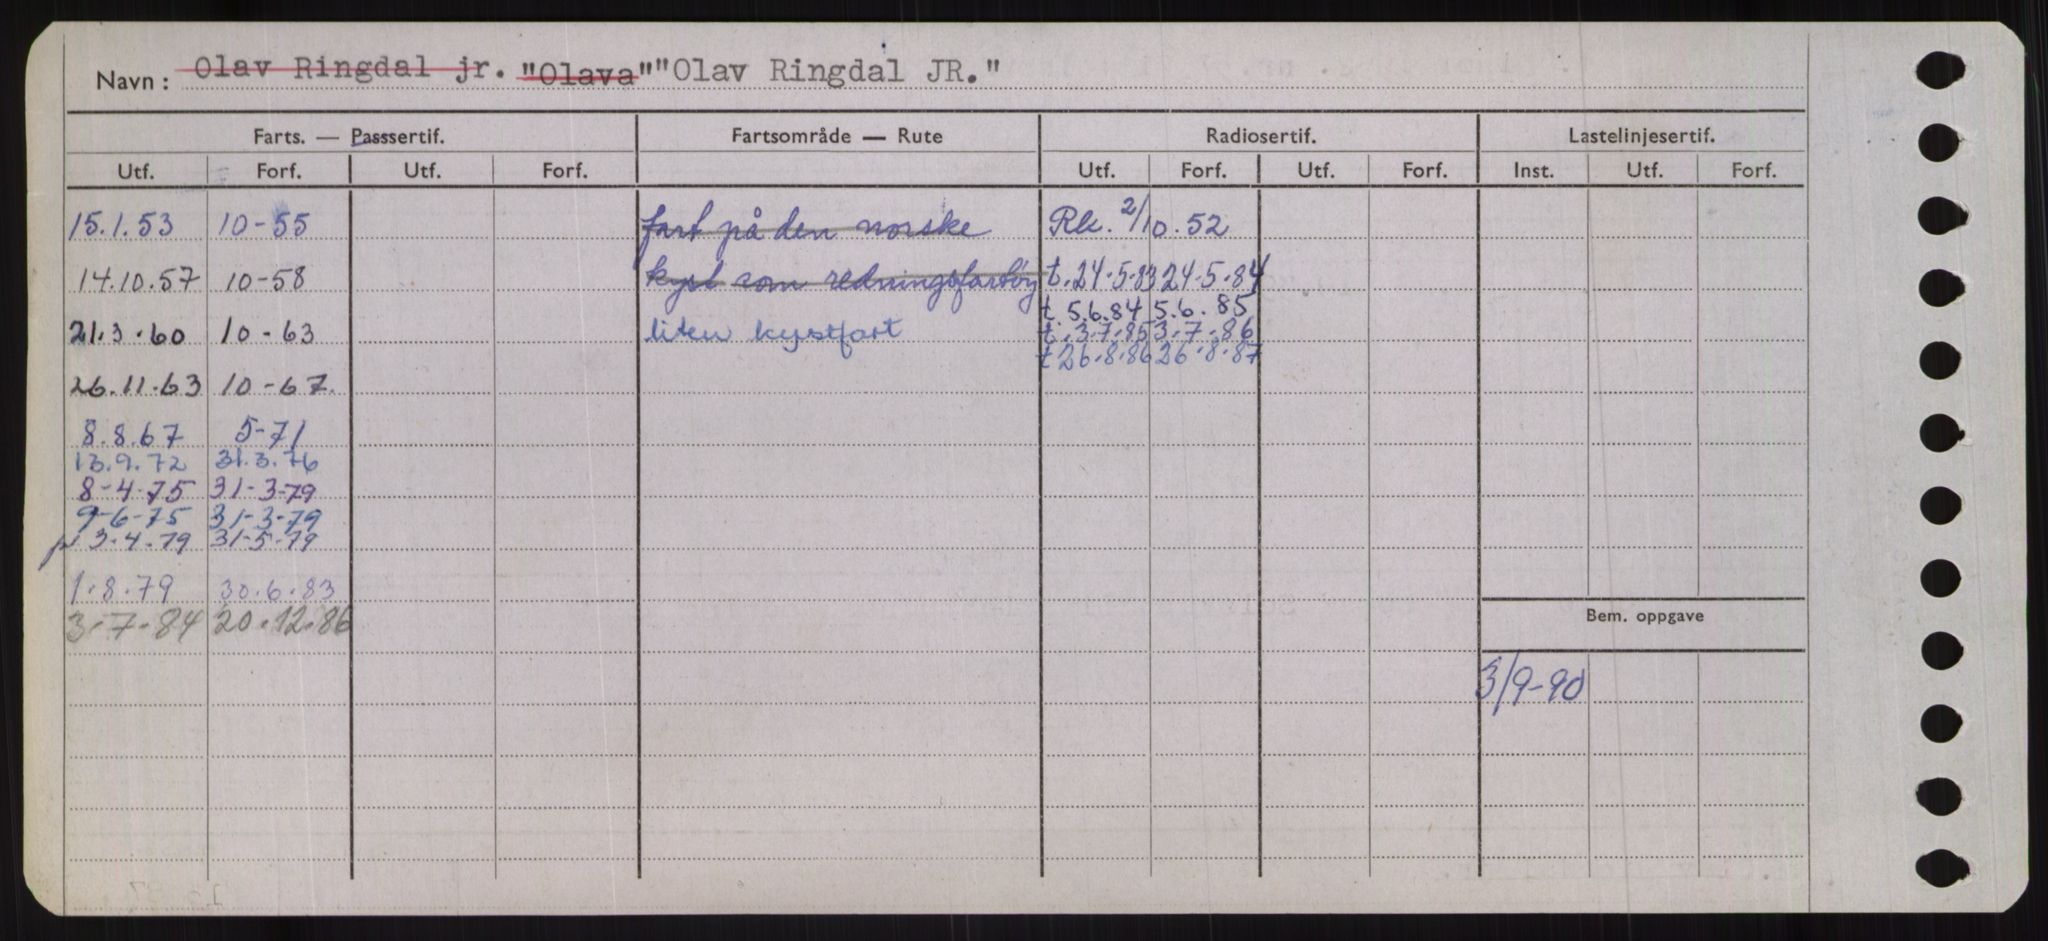 Navn: Olav Ringdal jr. "Olava" "Olav Ringdal JR."
Farts. — Passsertif. Fartsområde — Rute Radiosertif. Lastelinjesertif.
Utf. Forf. Utf. Forf. Utf. Forf. Utf. Forf. Inst. Utf. Forf.
15.1.53 10-55 fart på den norske Rk. 2/10.52
14.10.57 10-58 kyst som redningsfartöy t.24.5.83 24.5.84
t. 5.6.84 5.6.85
21.3.60 10-63 liten kystfart t.3.7.85 3.7.86
t 26.8.86 26.8.87
26.11.63 10-67.
8.8.67 5-71
13.9.72 31.3.76
8-4-75 31-3-79
9-6-75 31-3-79
3.4.79 31-5-79
1.8.79 30.6.83
3.7.84 20.12.86
Bem. oppgave
3/9-90